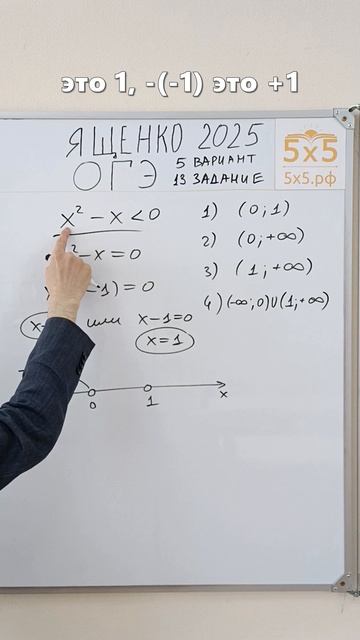 это 1, -(-1) это +1
ЯЩЕНКО 2025
ОГЭ
5 ВАРИАНТ
13 ЗАДАНИЕ
5×5
5х5.рф
x² - x < 0
² - x = 0
1) = 0
или x - 1 = 0
x = 1
0 1 x
1) (0; 1)
2) (0; +∞)
3) (1; +∞)
4) (-∞; 0) U (1; +∞)